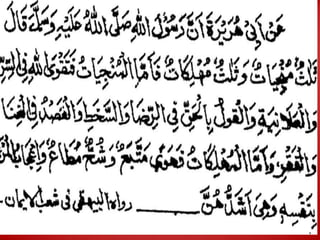 عَنْ اَبِىْ هُرَيْرَةَ اَنَّ رَسُوْلَ اللهِ صَلَّى اللهُ عَلَيْهِ وَسَلَّمَ قَالَ
ثَلٰثٌ مُنْجِيَاتٌ وَثَلٰثٌ مُهْلِكَاتٌ فَاَمَّا الْمُنْجِيَاتُ فَتَقْوَى اللهِ فِى السِّرِّ
وَالْعَلَانِيَةِ وَالْقَوْلُ بِالْحَقِّ فِى الرِّضَا وَالسَّخَطِ وَالْقَصْدُ فِى الْغِنَا
وَالْفَقْرِ وَاَمَّا الْمُهْلِكَاتُ فَهَوًى مُتَّبَعٌ وَشُحٌّ مُطَاعٌ وَاِعْجَابُ الْمَرْ
بِنَفْسِهٖ وَهِىَ اَشَدُّهُنَّ ــــــــ رواه البيهقى فى شعب الايمان ـ